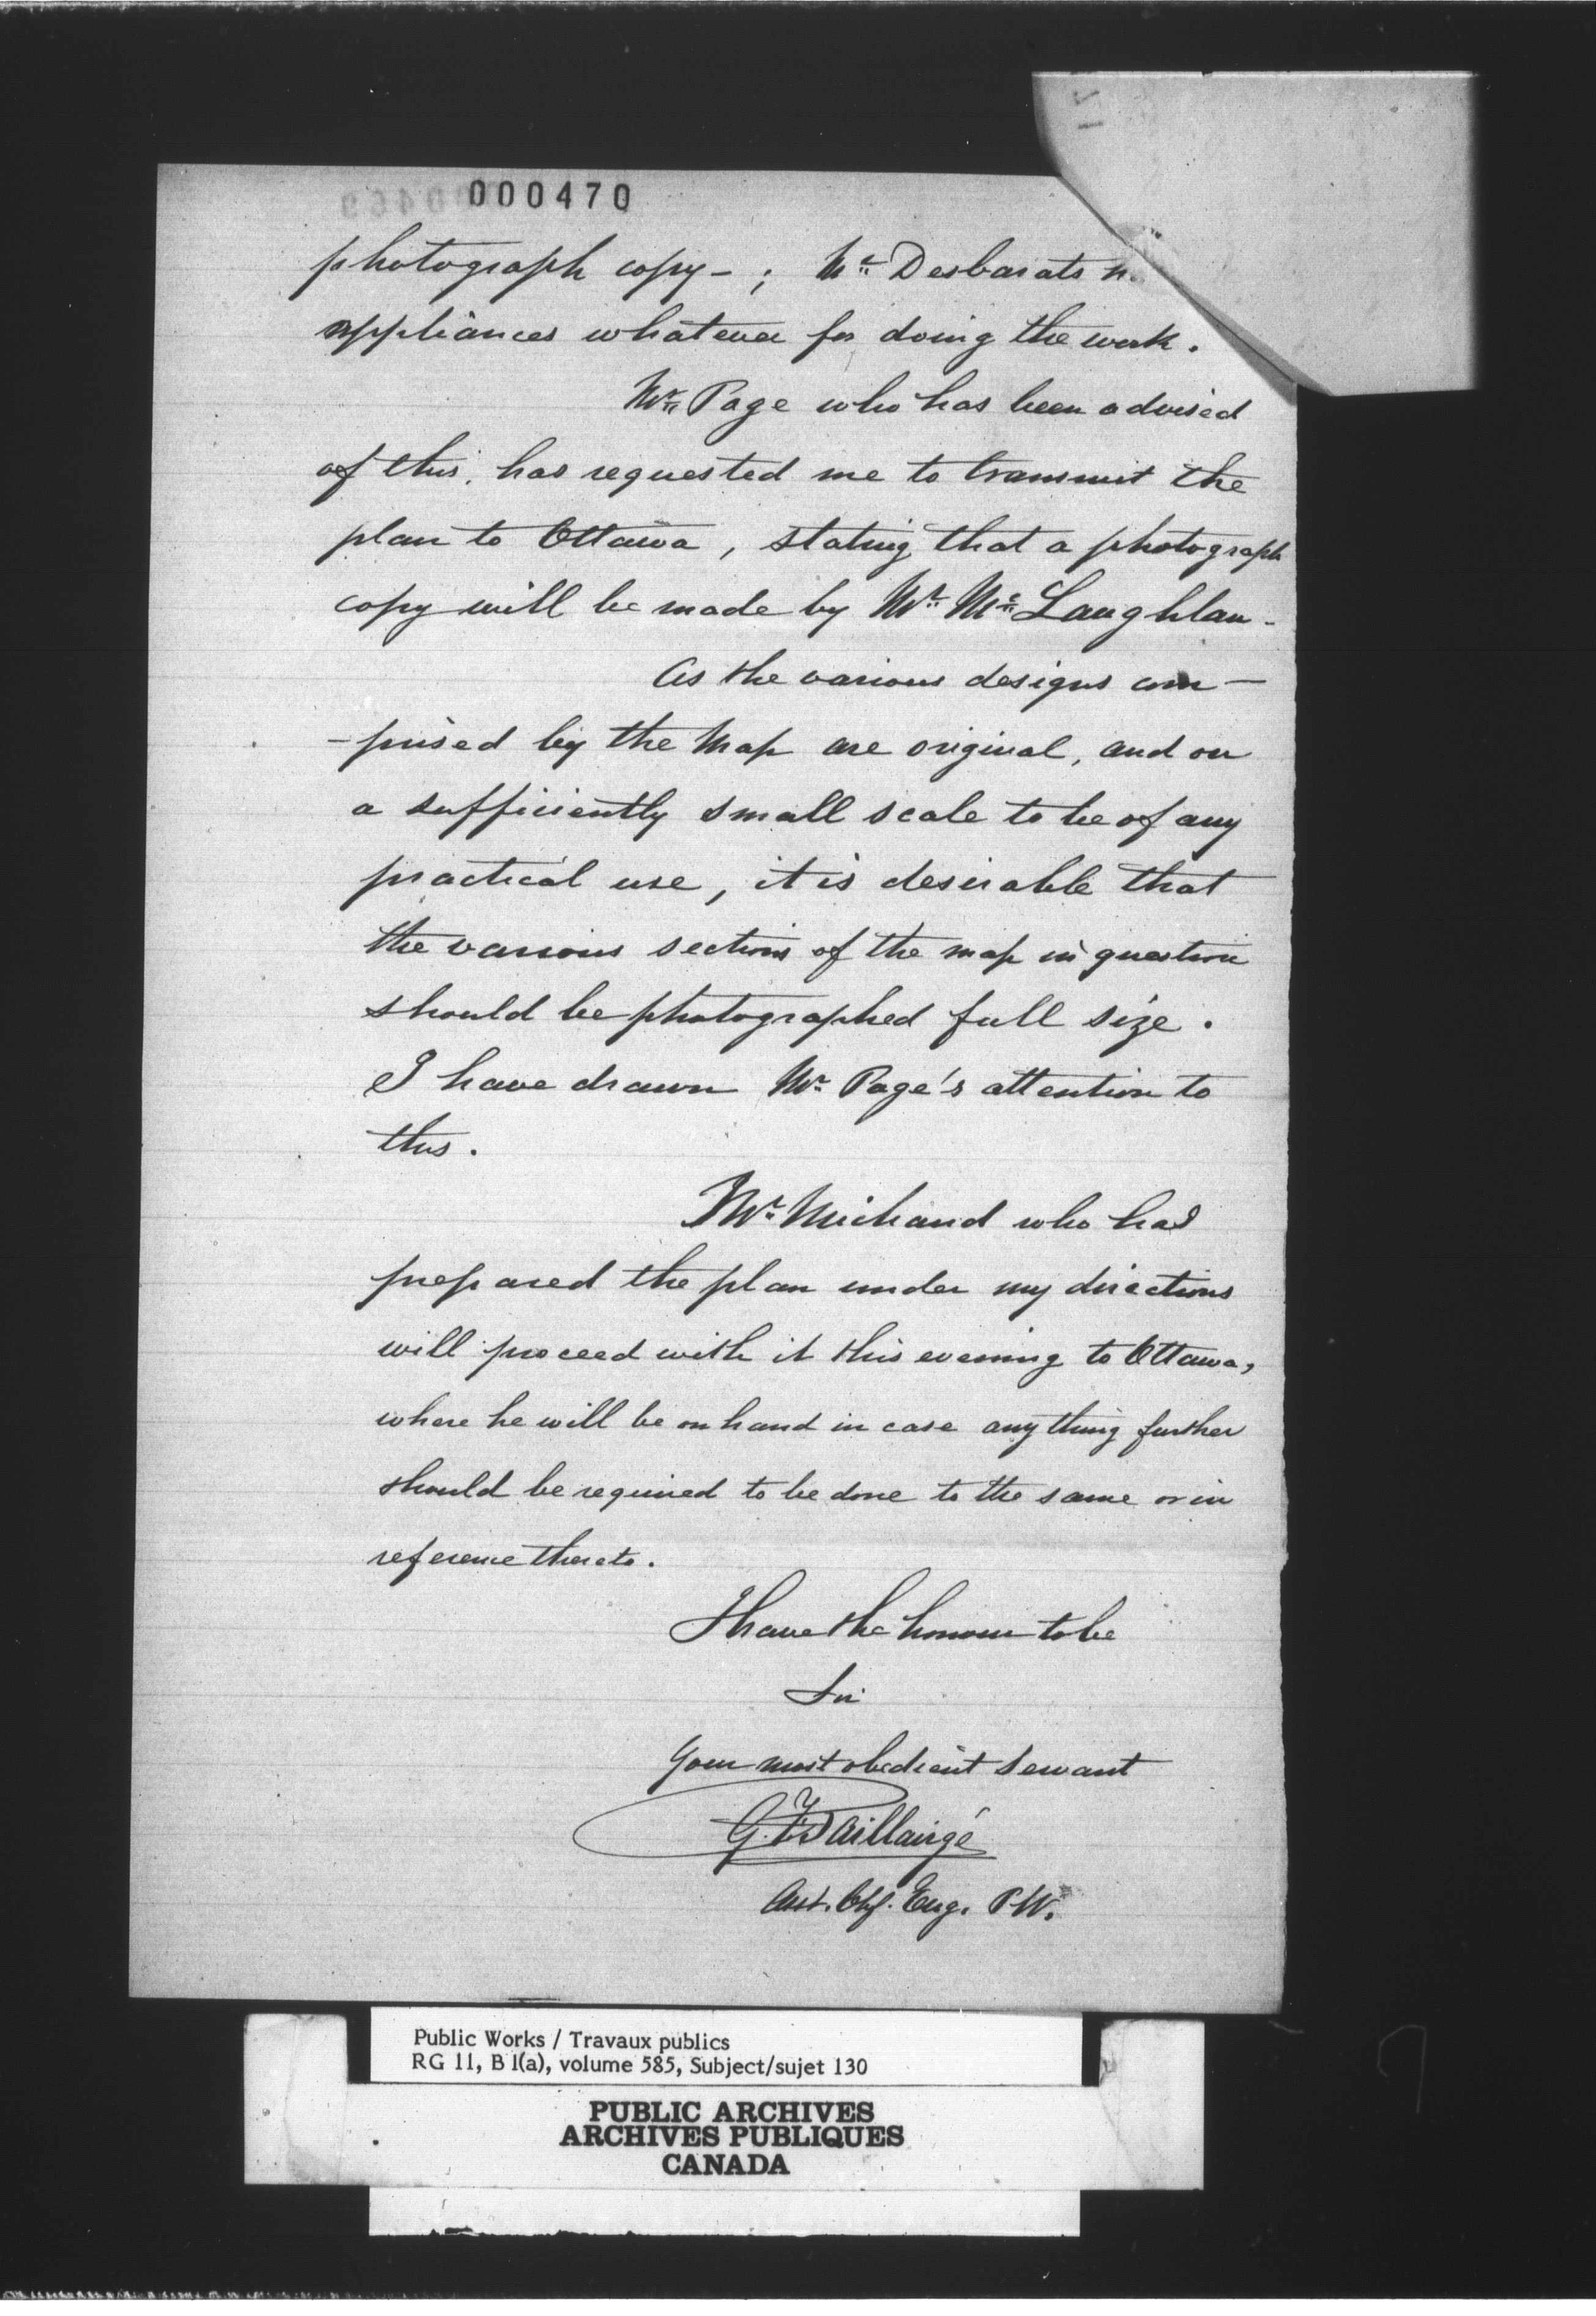 000470
photograph copy - ; Mr. Desbarats
appliances whatever for doing the work.
Mr. Page who has been advised
of this, has requested me to transmit the
plan to Ottawa, stating that a photograph
copy will be made by Mr. McLaughlan -
As the various designs com-
-prised by the Map are original, and on
a sufficiently small scale to be of any
practical use, it is desirable that
the various sections of the map in question
should be photographed full size.
I have drawn Mr. Page's attention to
this.
Mr. Michaud who has
prepared the plan under my directions
will proceed with it this evening to Ottawa,
where he will be on hand in case any thing further
should be required to be done to the same or in
reference thereto.
I have the honour to be
Sir
Your most obedient Servant
G. F. Baillairgé
Asst. Chf. Eng. P.W.
Public Works / Travaux publics
RG 11, B 1(a), volume 585, Subject/sujet 130
PUBLIC ARCHIVES
ARCHIVES PUBLIQUES
CANADA